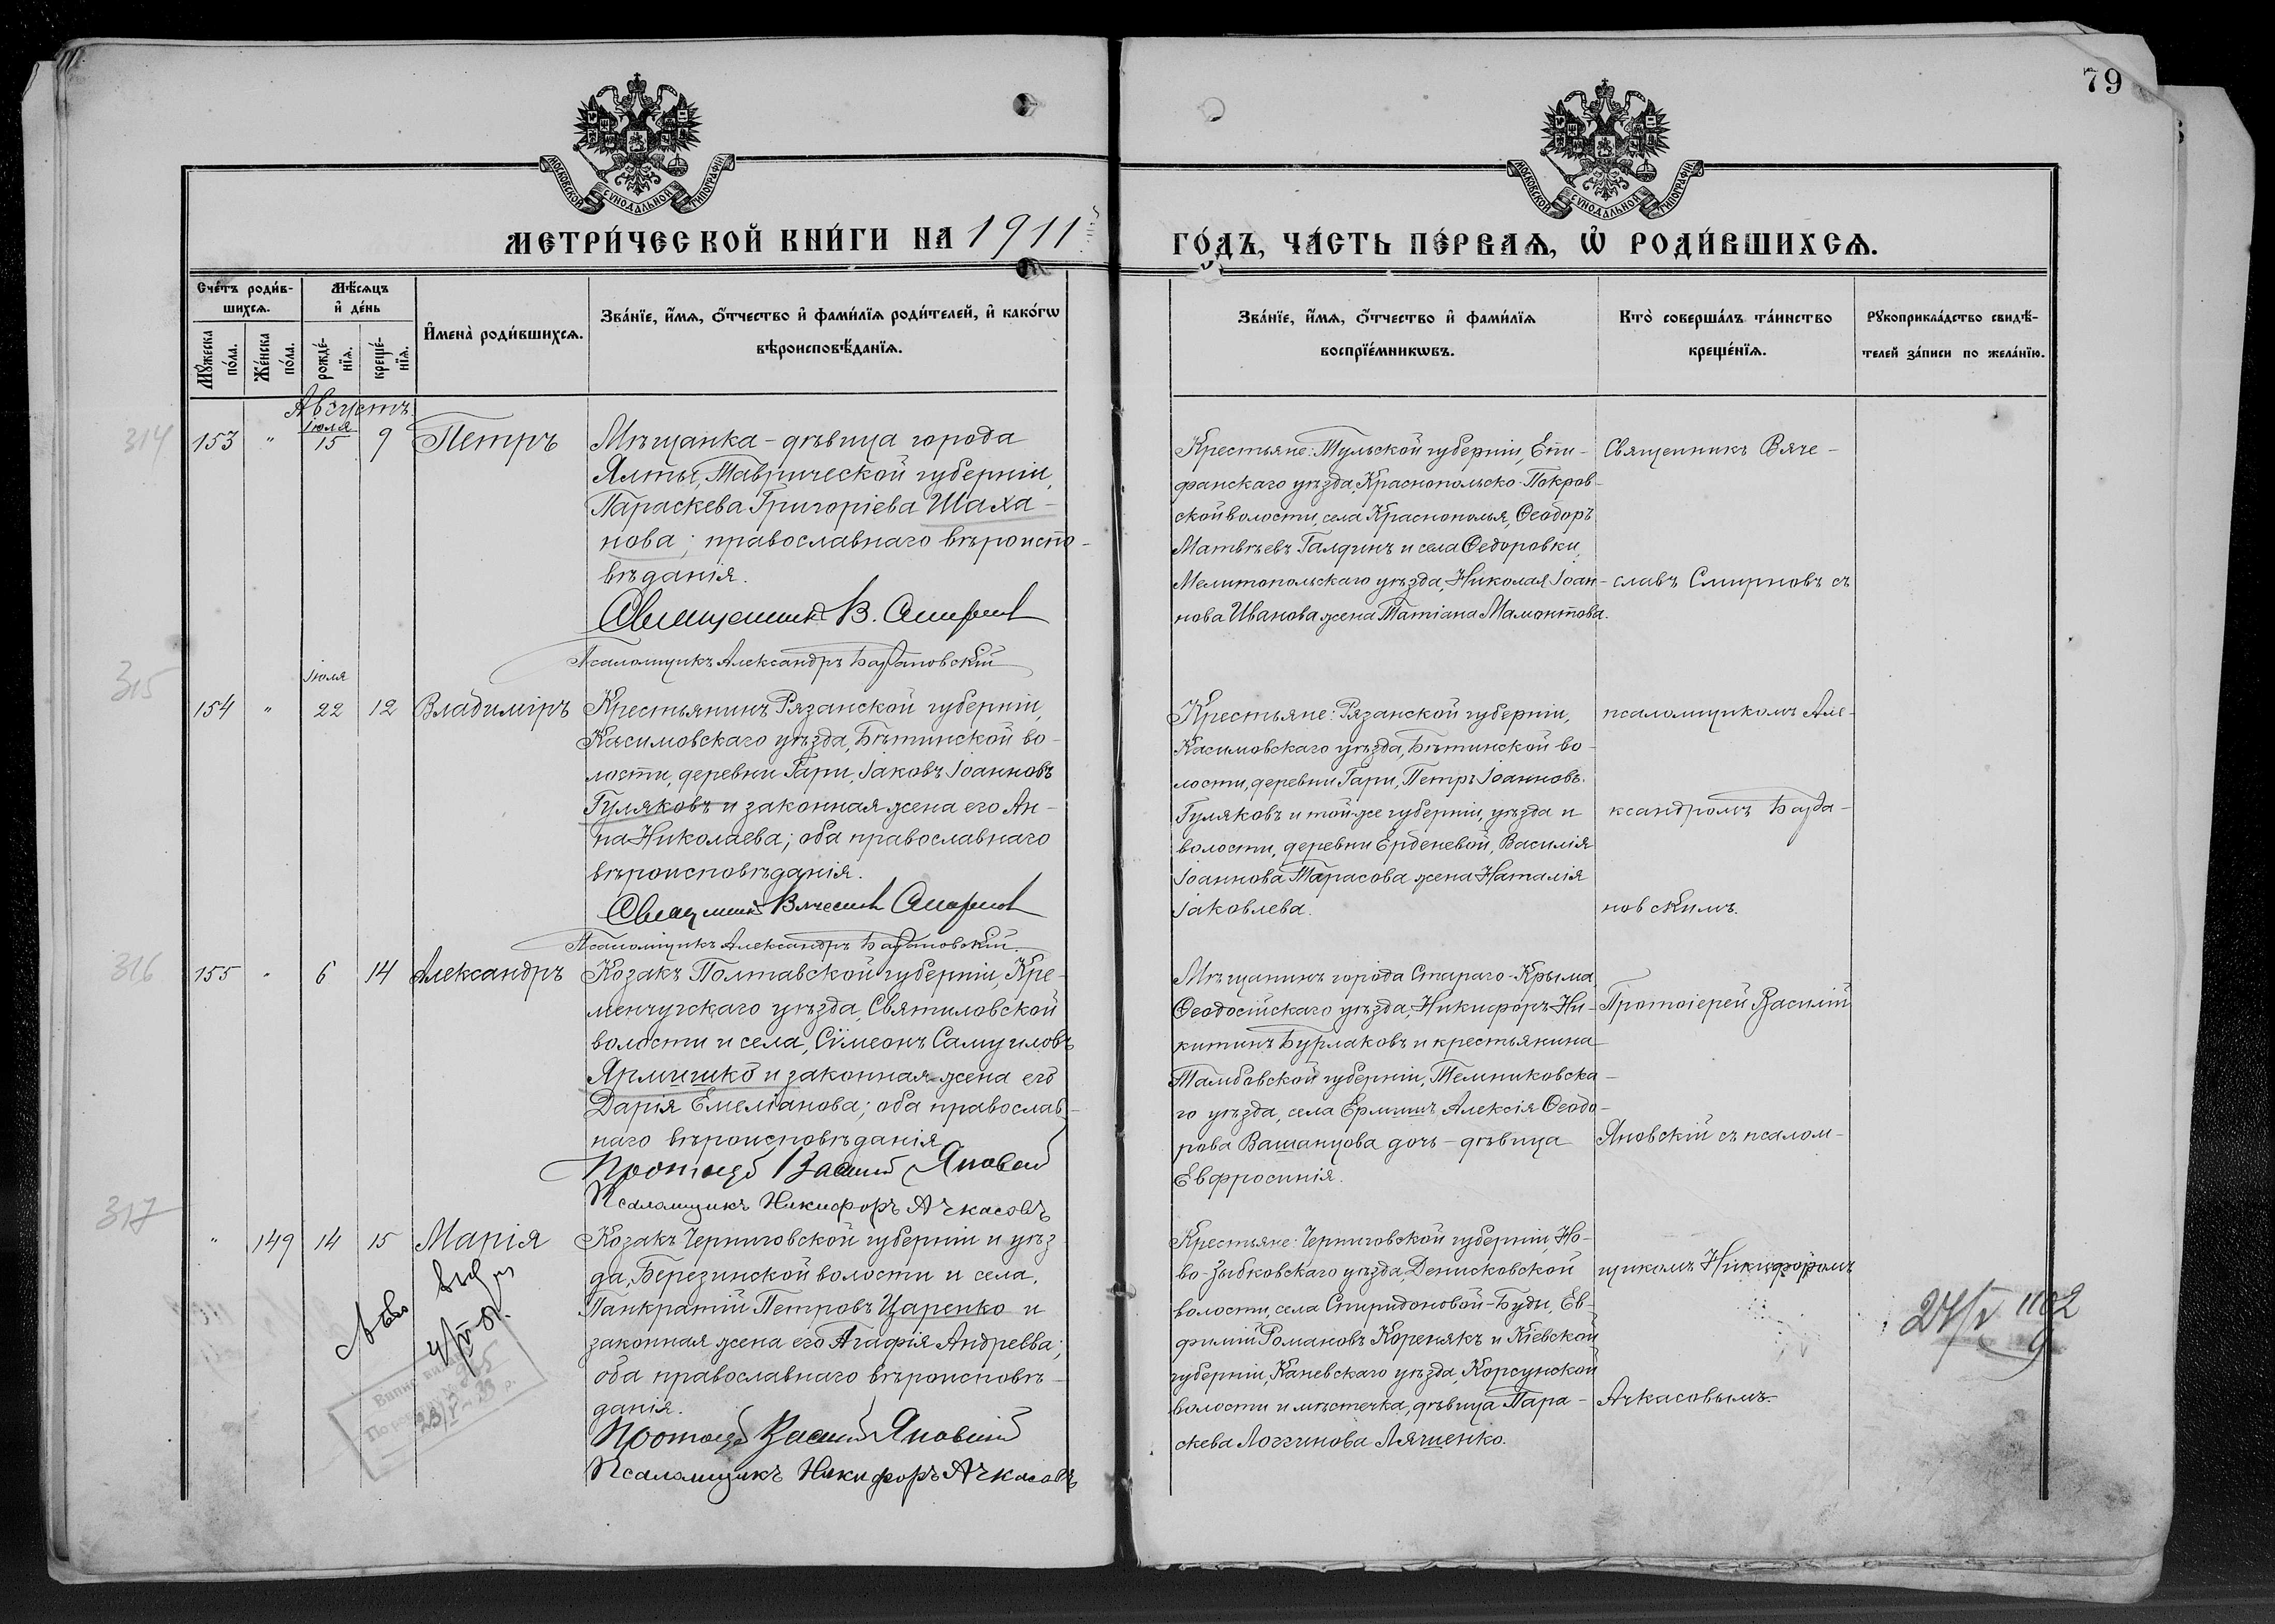 79
МОСКОВСКОЙ СУНОДАЛЬНОЙ ТИПОГРАФІИ
МОСКОВСКОЙ СУНОДАЛЬНОЙ ТИПОГРАФІИ
МЕТРИ́ЧЕСКОЙ КНИ́ГИ НА 1911
ГО́ДЪ, ЧА́СТЬ ПЕ́РВАѦ, Ѽ РОДИ́ВШИХСѦ.
Сче́тъ роди́в-
шихсѧ.
Мѣ́сѧцъ
и҆ де́нь
Мꙋ́жеска по́ла.
Же́нска по́ла.
рожде́-
нїѧ.
креще́-
нїѧ.
И҆мена̀ роди́вшихсѧ.
Зва́нїе, и҆́мѧ, ѻ҆́тчество и҆ фами́лїѧ роди́телей, и҆ како́гѡ
вѣроисповѣ́данїѧ.
Зва́нїе, и҆́мѧ, ѻ҆́тчество и҆ фами́лїѧ
воспрїе́мникѡвъ.
Кто̀ соверша́лъ та́инство
креще́нїѧ.
Рꙋкоприкла́дство свидѣ́-
телей за́писи по жела́нїю.
Августъ
314
153 " Іюля 15 9 Петръ
Мѣщанка - дѣвица города
Ялты, Таврической губерніи,
Параскева Григоріева Шаха-
нова; православнаго вѣроиспо-
вѣданія.
Священникъ В. Смирновъ
Псаломщикъ Александръ Баздановскій
Крестьяне: Тульской губерніи, Епи-
фанскаго уѣзда, Краснопольско-Покров-
ской волости, села Краснополья, Ѳеодоръ
Матвѣевъ Галдинъ и села Ѳедоровки,
Мелитопольскаго уѣзда, Николая Іоан-
нова Иванова жена Татіана Мамонтова.
Священникъ Вяче-
славъ Смирновъ съ
315
154 " Іюля 22 12 Владиміръ
Крестьянинъ Рязанской губерніи,
Касимовскаго уѣзда, Бѣтинской во-
лости, деревни Гари, Іаковъ Іоанновъ
Гуляковъ и законная жена его Ан-
на Николаева; оба православнаго
вѣроисповѣданія.
Священникъ Вячеславъ Смирновъ
Псаломщикъ Александръ Баздановскій.
Крестьяне: Рязанской губерніи,
Касимовскаго уѣзда, Бѣтинской во-
лости, деревни Гари, Петръ Іоанновъ
Гуляковъ и той-же губерніи, уѣзда и
волости, деревни Ерденевой, Василія
Іоаннова Тарасова жена Наталія
Іаковлева.
псаломщикомъ Але-
ксандромъ Базда-
новскимъ.
316
155 " 6 14 Александръ
Козакъ Полтавской губерніи, Кре-
менчугскаго уѣзда, Святиловской
волости и села, Сѵмеонъ Самуиловъ
Ярмишко и законная жена его
Дарія Емеліанова; оба православ-
наго вѣроисповѣданія
Протоіерей Василій Яновскій
Псаломщикъ Никифоръ Ачкасовъ
Мѣщанинъ города Стараго-Крыма
Ѳеодосійскаго уѣзда, Никифоръ Ни-
китинъ Бурлаковъ и крестьянина
Тамбовской губерніи, Темниковска-
го уѣзда, села Ермишъ Алексія Ѳеодо-
рова Вашанцова дочь - дѣвица
Евфросинія.
Протоіерей Василій
Яновскій съ псалом-
317
" 149 14 15 Марія
Козакъ Черниговской губерніи и уѣз-
да, Березинской волости и села,
Панкратій Петровъ Царенко и
законная жена его Агафія Андреева;
оба православнаго вѣроисповѣ-
данія.
Протоіерей Василій Яновскій
Псаломщикъ Никифоръ Ачкасовъ
Крестьяне: Черниговской губерніи, Но-
во-Зыбковскаго уѣзда, Денисковской
волости, села Спиридоновой-Буды, Ев-
фимій Романовъ Коренякъ и Кіевской
губерніи, Каневскаго уѣзда, Корсунской
волости и мѣстечка, дѣвица Пара-
скева Логгинова Ляшенко.
щикомъ Никифоромъ
Ачкасовымъ.